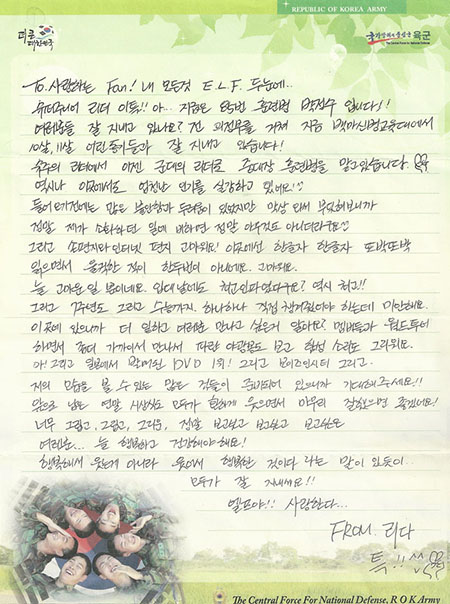 REPUBLIC OF KOREA ARMY
대한민국
육군
The Central Force for National Defense
To. 사랑하는 Fan! 내 모든것 E.L.F 두눈에..
슈퍼주니어 리더 이특!! 아... 지금은 훈련병 박정수 입니다!
여러분들 잘 지내고 있나요? 전 의정부를 거쳐 지금 백마신병교육대에서
10살, 11살 어린 동이들과 잘 지내고 있습니다!
슈주의 리더에서 이젠 군대의 리더로 중대장 훈련병을 맡고있습니다
역시나 이곳에서도 엄청난 인기를 실감하고 있어요!
들어오기전에는 많은 불안함과 두려움이 있었지만 막상 와서 부딪혀보니까
정말 제가 소화하던 일에 비하면 정말 아무것도 아니더라구요
그리고 손편지와 인터넷 편지 고마워요! 이곳에선 한글자 한글자 또박또박
읽으면서 울컥한 적이 한두번이 아니에요. 고마워요.
늘 고마운 일 뿐이네요. 입대날에도 최고였다면서요? 역시 최고!!
그리고 7주년도 그리고 수능까지. 하나하나 직접 챙겨줬어야 하는데 미안해요.
이곳에 있으니까 더 일하고 여러분 만나고 싶은거 알아요? 멤버들과 월드투어
하면서 좀더 가까이서 만나서 파란 야광봉도 보고 함성 소리도 그리워요.
아! 그리고 일본에서 발매된 DVD 1위! 그리고 보이즈인시티 그리고.
저의 모습을 볼 수 있는 많은 것들이 준비되어 있으니까 기대해주세요!!
앞으로 남은 연말 시상식도 모두가 함께 웃으면서 마무리 잘했으면 좋겠네요!
너무 그립고, 그립고, 그리운, 정말 보고싶고 보고싶고 보고싶은
여러분... 늘 행복하고 건강해야해요!
행복해서 웃는게 아니라 웃어서 행복한 것이다 라는 말이 있듯이..
모두가 잘 지내세요!!
엘프야!! 사랑한다...
FROM. 리더
특!!
The Central Force For National Defense, R O K Army